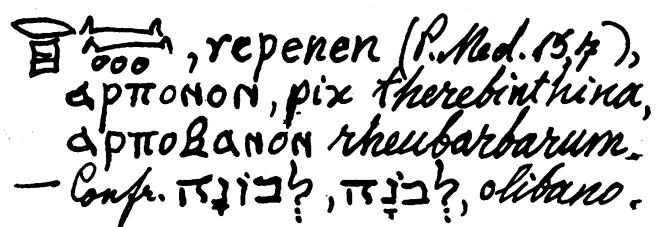 , repenen (P. Med. 15,7),
ⲁⲣⲡⲟⲛⲟⲛ, pix therebinthina,
ⲁⲣⲡⲟⲃⲁⲛⲟⲛ rheubarbarum.
— Confr. לְבוֹנָה, לְבֹנָה, olibano.